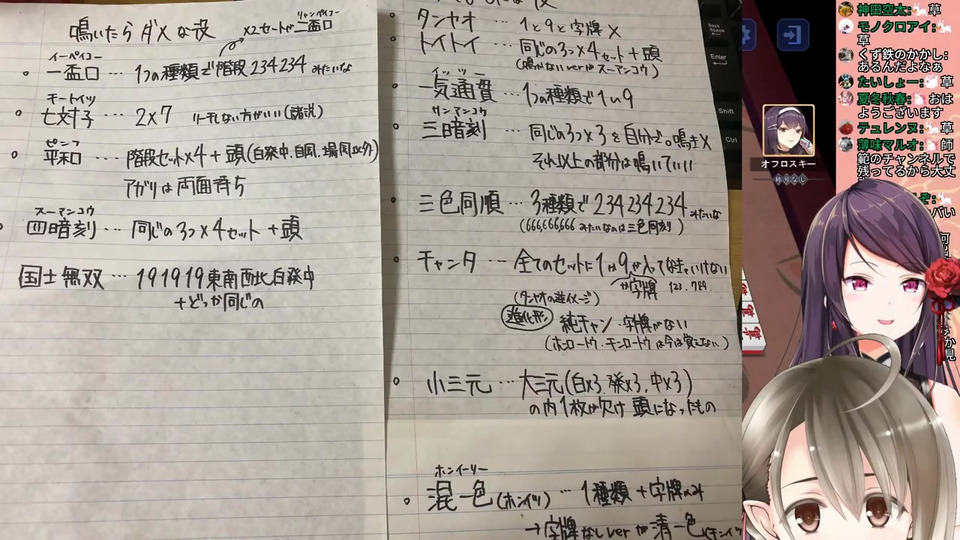 鳴いたらダメな役
×2セットが二盃口
リャンペイコー
イーペイコー
一盃口…1つの種類で階段234234みたいな
モートイツ
七対子…2×7 リーチしない方がいい(諸説)
ピンフ
平和…階段セット×4+頭(白発中,自風,場風以外)
アガリは両面待ち
スーアンコウ
四暗刻…同じの3つ×4セット+頭
国士無双…191919東南西北白発中
+どっか同じの
タンヤオ…1と9と字牌×
トイトイ…同じの3つ×4セット+頭
(鳴かないverはスーマンコウ)
イッツー
一気通貫…1つの種類で1〜9
サンアンコウ
三暗刻…同じの3つ×3を自分で。鳴き×
それ以上の部分は鳴いていい
三色同順…3種類で234234234みたいな
(666,666,666みたいなのは三色同刻)
チャンタ…全てのセットに1か9が入ってなきゃいけない
か字牌 123,789
(タンヤオの逆イメージ)
進化形 純チャン・字牌がない
(ホンロートウ・チンロートウは今は覚えない)
小三元…大三元(白×3,発×3,中×3)
の内1枚が欠け頭になったもの
ホンイーソー
混一色(ホンイツ)…1種類+字牌のみ
→字牌なしverが清一色(チンイツ
Enter
Shift
Ctrl
オフロスキー
神田空太:草
モノクロアイ:
草
くず鉄のかかし:
あるんだよなぁ
たいしょー:草
夏冬秋春:おは
ようございます
テュレンヌ:草
薄味マルオ:師
範のチャンネルで
残ってるから大丈